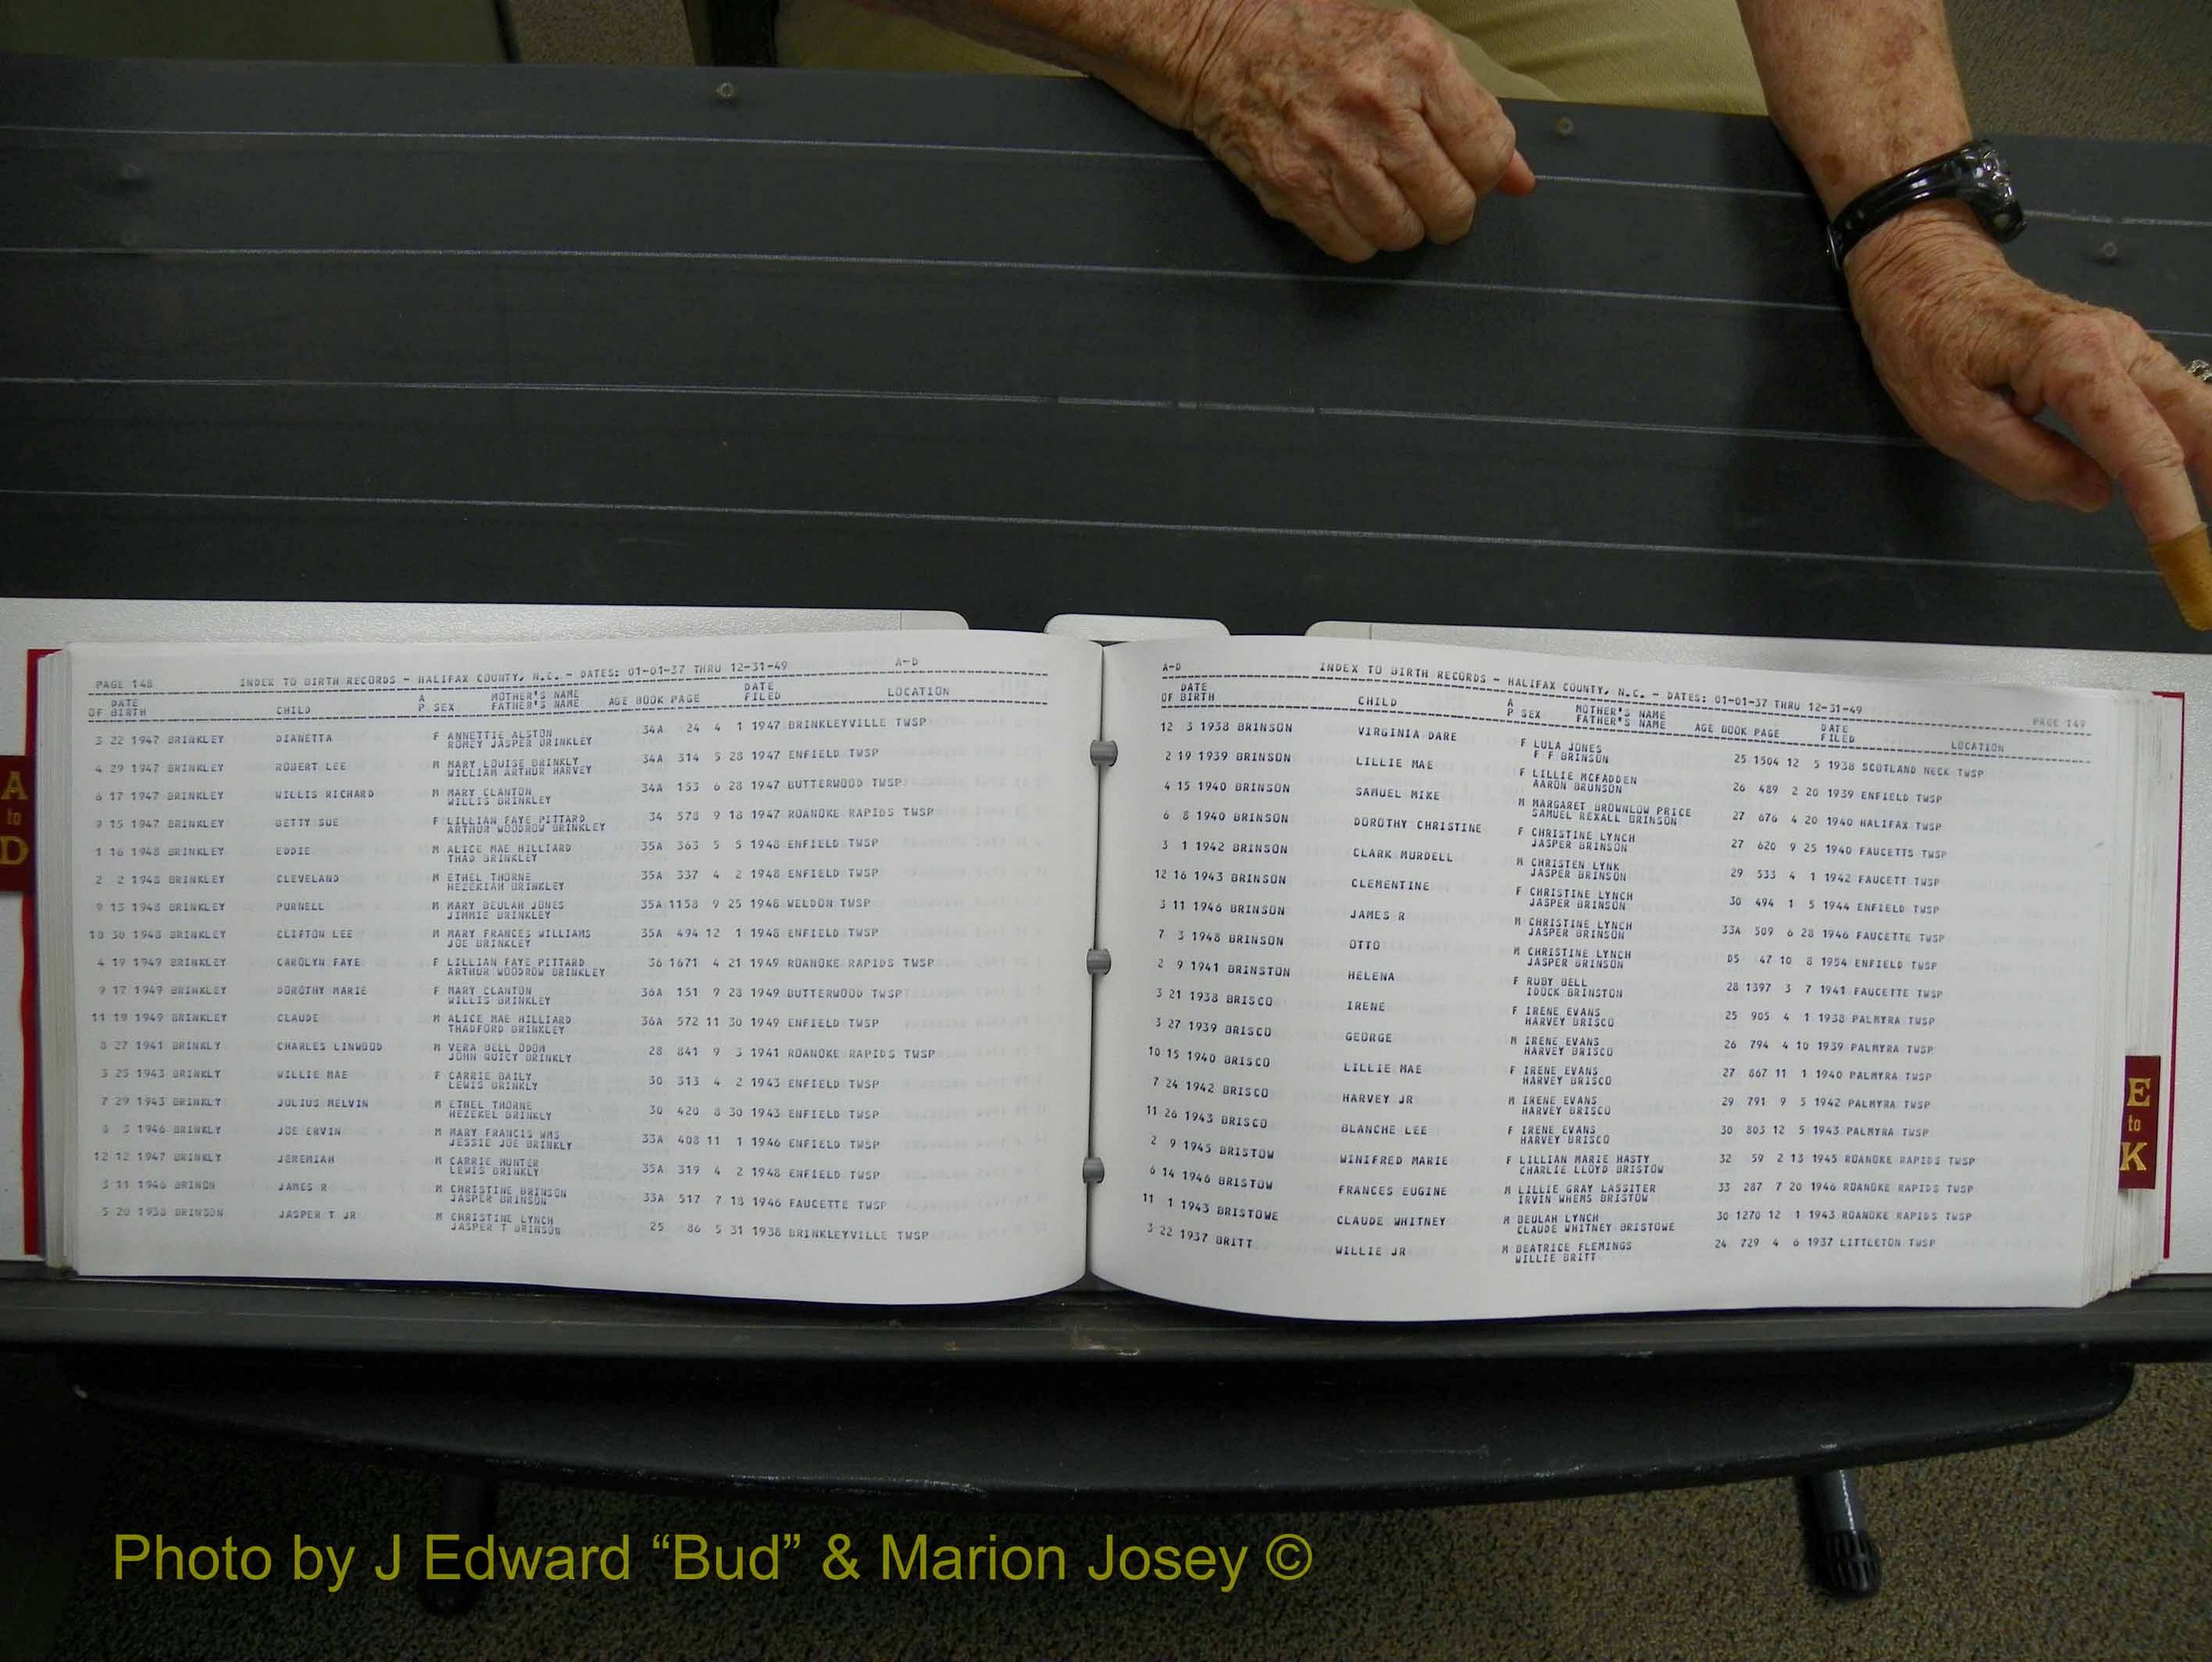 A
to
D
PAGE 148 INDEX TO BIRTH RECORDS - HALIFAX COUNTY, N.C. - DATES: 01-01-37 THRU 12-31-49 A-D
DATE OF BIRTH CHILD A P SEX MOTHER'S NAME FATHER'S NAME AGE BOOK PAGE DATE FILED LOCATION
3 22 1947 BRINKLEY DIANETTA F ANNETTIE ALSTON 34A 24 4 1 1947 BRINKLEYVILLE TWSP
ROMEY JASPER BRINKLEY
4 29 1947 BRINKLEY ROBERT LEE M MARY LOUISE BRINKLY 34A 314 5 28 1947 ENFIELD TWSP
WILLIAM ARTHUR HARVEY
6 17 1947 BRINKLEY WILLIS RICHARD M MARY CLANTON 34A 153 6 28 1947 BUTTERWOOD TWSP
WILLIS BRINKLEY
9 15 1947 BRINKLEY BETTY SUE F LILLIAN FAYE PITTARD 34 578 9 18 1947 ROANOKE RAPIDS TWSP
ARTHUR WOODROW BRINKLEY
1 16 1948 BRINKLEY EDDIE M ALICE MAE HILLIARD 35A 363 5 5 1948 ENFIELD TWSP
THAD BRINKLEY
2 2 1948 BRINKLEY CLEVELAND M ETHEL THORNE 35A 337 4 2 1948 ENFIELD TWSP
HEZEKIAH BRINKLEY
9 13 1948 BRINKLEY PURNELL M MARY BEULAH JONES 35A 1158 9 25 1948 WELDON TWSP
JIMMIE BRINKLEY
10 30 1948 BRINKLEY CLIFTON LEE M MARY FRANCES WILLIAMS 35A 494 12 1 1948 ENFIELD TWSP
JOE BRINKLEY
4 19 1949 BRINKLEY CAROLYN FAYE F LILLIAN FAYE PITTARD 36 1671 4 21 1949 ROANOKE RAPIDS TWSP
ARTHUR WOODROW BRINKLEY
9 17 1949 BRINKLEY DOROTHY MARIE F MARY CLANTON 36A 151 9 28 1949 BUTTERWOOD TWSP
WILLIS BRINKLEY
11 19 1949 BRINKLEY CLAUDE M ALICE MAE HILLIARD 36A 572 11 30 1949 ENFIELD TWSP
THADFORD BRINKLEY
8 27 1941 BRINKLY CHARLES LINWOOD M VERA BELL ODOM 28 841 9 3 1941 ROANOKE RAPIDS TWSP
JOHN QUICY BRINKLY
3 25 1943 BRINKLY WILLIE MAE F CARRIE BAILY 30 313 4 2 1943 ENFIELD TWSP
LEWIS BRINKLY
7 29 1943 BRINKLY JULIUS MELVIN M ETHEL THORNE 30 420 8 30 1943 ENFIELD TWSP
HEZEKEL BRINKLY
8 5 1946 BRINKLY JOE ERVIN M MARY FRANCIS WMS 33A 408 11 1 1946 ENFIELD TWSP
JESSIE JOE BRINKLY
12 12 1947 BRINKLY JEREMIAH M CARRIE HUNTER 35A 319 4 2 1948 ENFIELD TWSP
LEWIS BRINKLY
3 11 1946 BRINON JAMES R M CHRISTINE BRINSON 33A 517 7 18 1946 FAUCETTE TWSP
JASPER BRINSON
5 20 1938 BRINSON JASPER T JR M CHRISTINE LYNCH 25 86 5 31 1938 BRINKLEYVILLE TWSP
JASPER T BRINSON
A-D INDEX TO BIRTH RECORDS - HALIFAX COUNTY, N.C. - DATES: 01-01-37 THRU 12-31-49 PAGE 149
DATE OF BIRTH CHILD A P SEX MOTHER'S NAME FATHER'S NAME AGE BOOK PAGE DATE FILED LOCATION
12 3 1938 BRINSON VIRGINIA DARE F LULA JONES 25 1504 12 5 1938 SCOTLAND NECK TWSP
F F BRINSON
2 19 1939 BRINSON LILLIE MAE F LILLIE MCFADDEN 26 489 2 20 1939 ENFIELD TWSP
AARON BRUNSON
4 15 1940 BRINSON SAMUEL MIKE M MARGARET BROWNLOW PRICE 27 676 4 20 1940 HALIFAX TWSP
SAMUEL REXALL BRINSON
6 8 1940 BRINSON DOROTHY CHRISTINE F CHRISTINE LYNCH 27 620 9 25 1940 FAUCETTS TWSP
JASPER BRINSON
3 1 1942 BRINSON CLARK MURDELL M CHRISTEN LYNK 29 533 4 1 1942 FAUCETT TWSP
JASPER BRINSON
12 16 1943 BRINSON CLEMENTINE F CHRISTINE LYNCH 30 494 1 5 1944 ENFIELD TWSP
JASPER BRINSON
3 11 1946 BRINSON JAMES R M CHRISTINE LYNCH 33A 509 6 28 1946 FAUCETTE TWSP
JASPER BRINSON
7 3 1948 BRINSON OTTO M CHRISTINE LYNCH D5 47 10 8 1954 ENFIELD TWSP
JASPER BRINSON
2 9 1941 BRINSTON HELENA F RUBY BELL 28 1397 3 7 1941 FAUCETTE TWSP
IDUCK BRINSTON
3 21 1938 BRISCO IRENE F IRENE EVANS 25 905 4 1 1938 PALMYRA TWSP
HARVEY BRISCO
3 27 1939 BRISCO GEORGE M IRENE EVANS 26 794 4 10 1939 PALMYRA TWSP
HARVEY BRISCO
10 15 1940 BRISCO LILLIE MAE F IRENE EVANS 27 867 11 1 1940 PALMYRA TWSP
HARVEY BRISCO
7 24 1942 BRISCO HARVEY JR M IRENE EVANS 29 791 9 5 1942 PALMYRA TWSP
HARVEY BRISCO
11 26 1943 BRISCO BLANCHE LEE F IRENE EVANS 30 803 12 5 1943 PALMYRA TWSP
HARVEY BRISCO
2 9 1945 BRISTOW WINIFRED MARIE F LILLIAN MARIE HASTY 32 59 2 13 1945 ROANOKE RAPIDS TWSP
CHARLIE LLOYD BRISTOW
6 14 1946 BRISTOW FRANCES EUGINE M LILLIE GRAY LASSITER 33 287 7 20 1946 ROANOKE RAPIDS TWSP
IRVIN WHEMS BRISTOW
11 1 1943 BRISTOWE CLAUDE WHITNEY M BEULAH LYNCH 30 1270 12 1 1943 ROANOKE RAPIDS TWSP
CLAUDE WHITNEY BRISTOWE
3 22 1937 BRITT WILLIE JR M BEATRICE FLEMINGS 24 729 4 6 1937 LITTLETON TWSP
WILLIE BRITT
E
to
K
Photo by J Edward “Bud” & Marion Josey ©